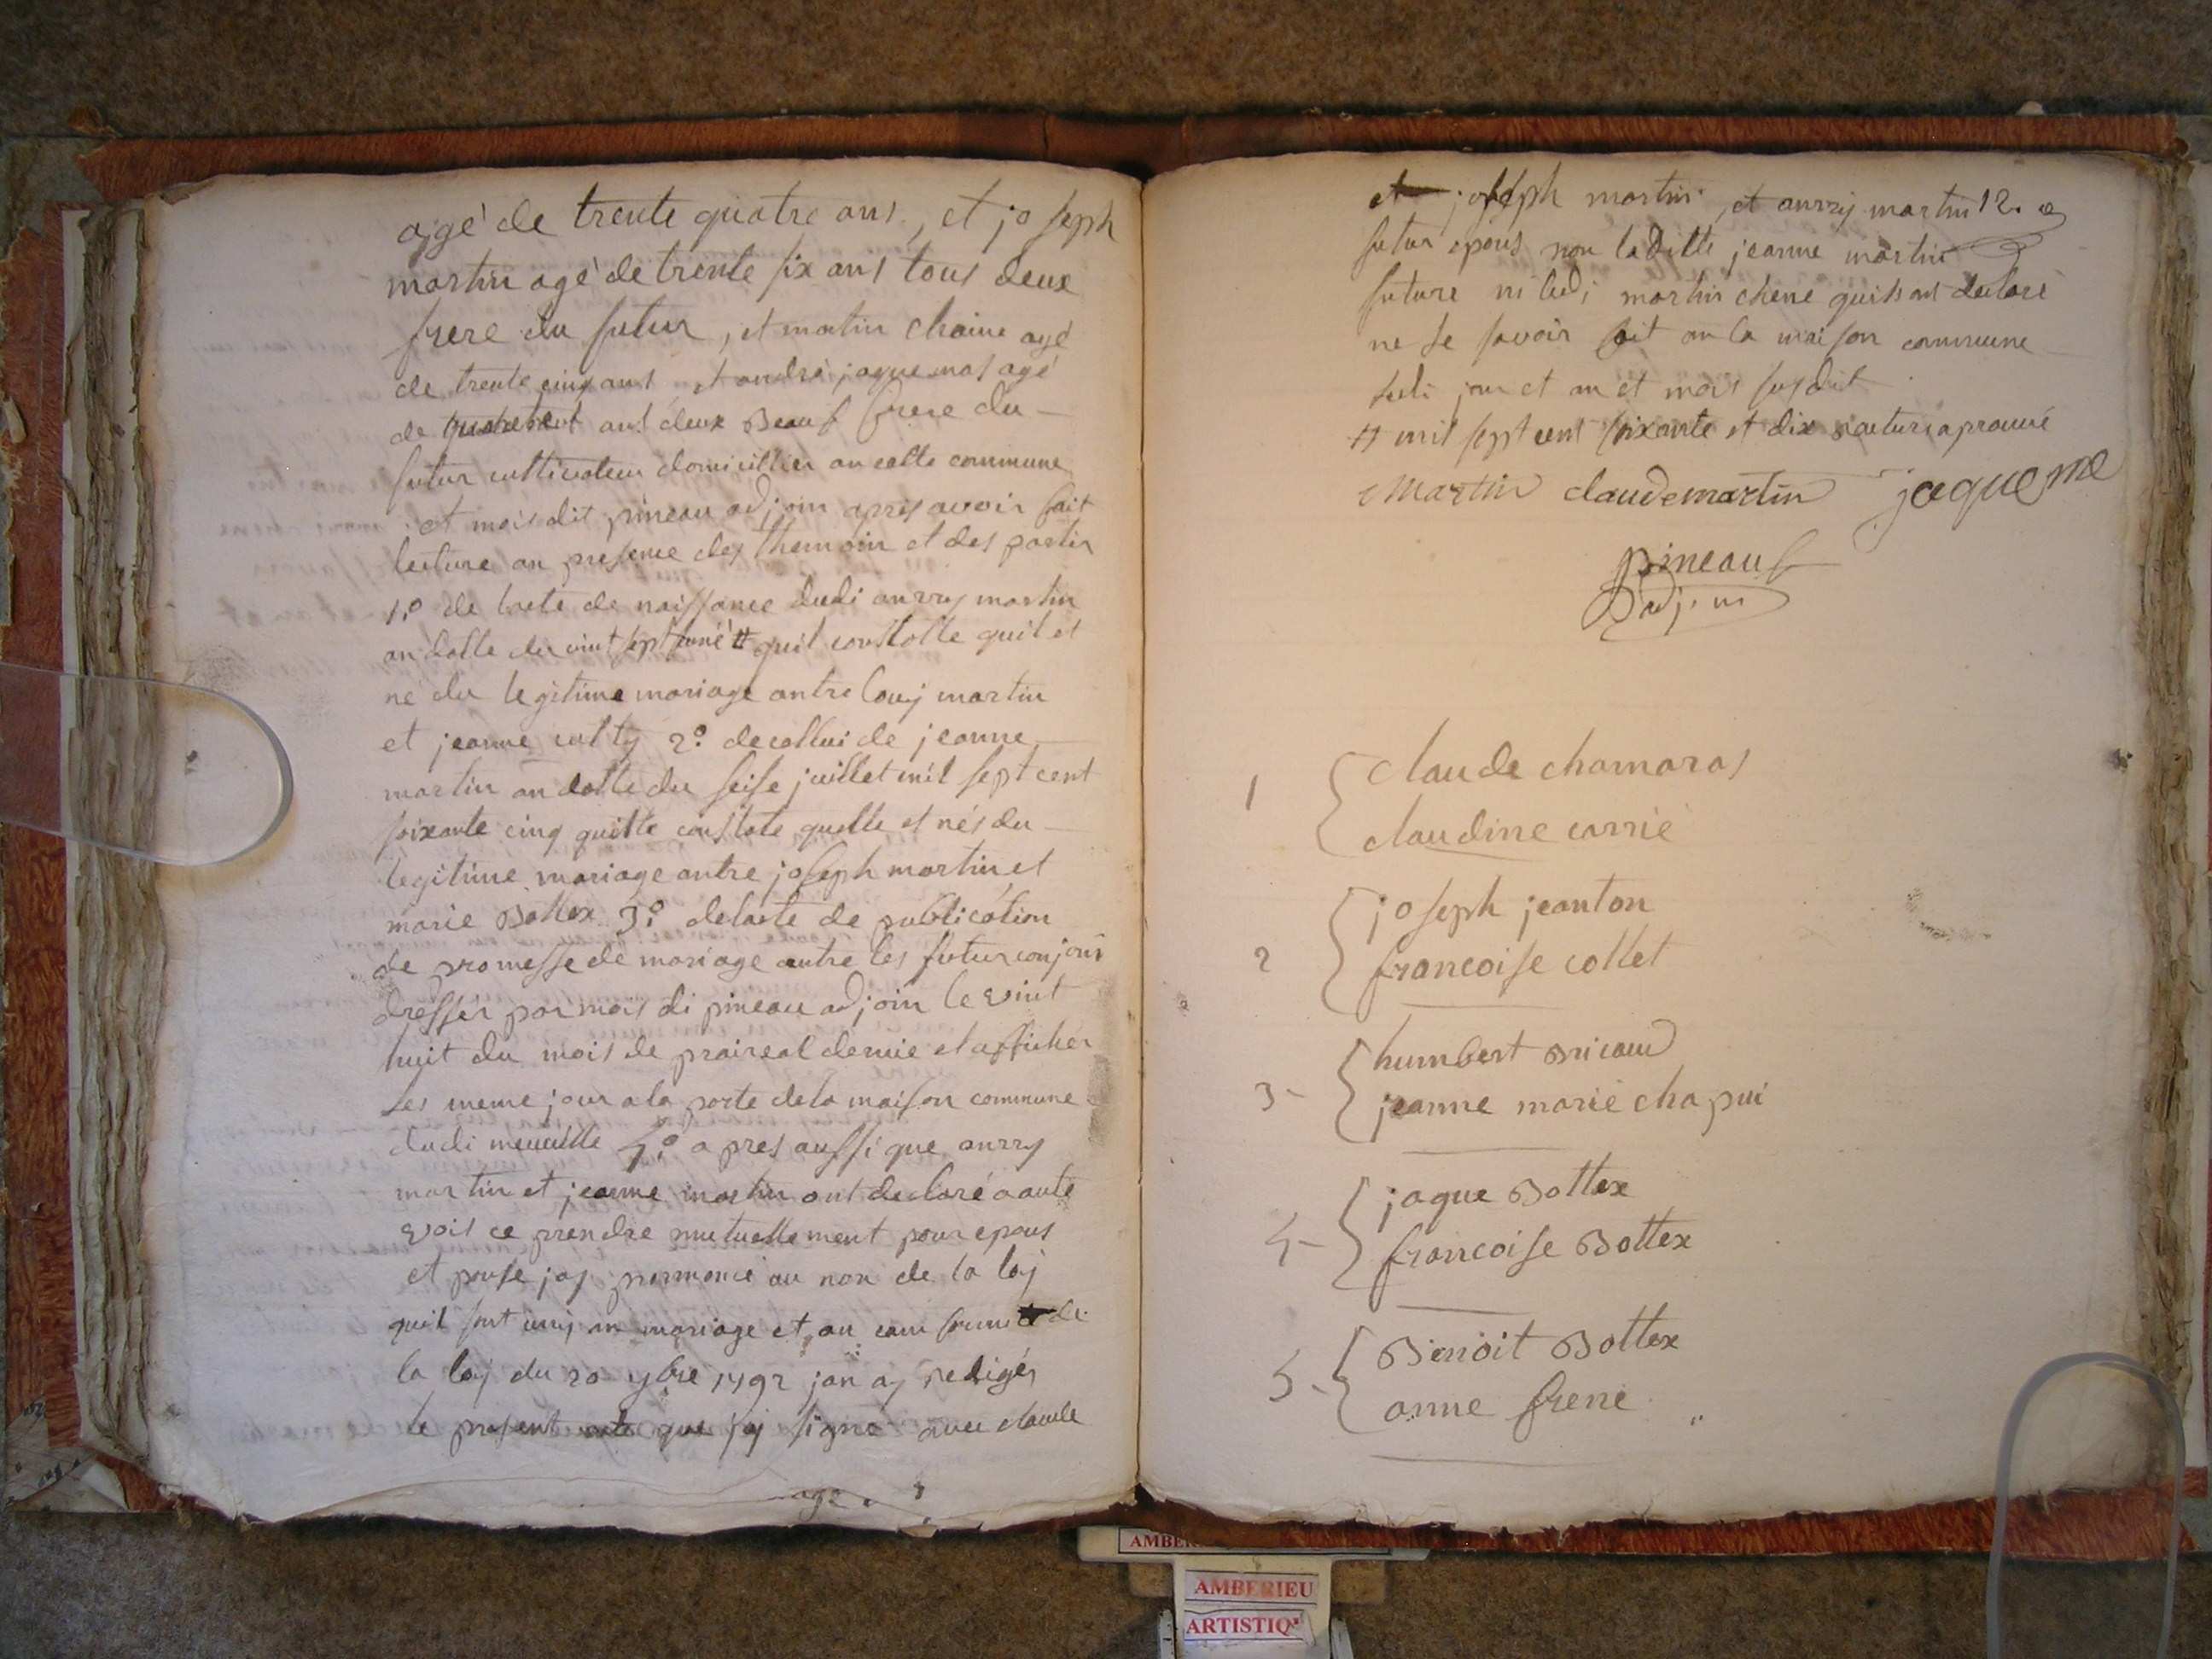 agé de trente quatre ans, et joseph
martin agé de trente six ans tous deux
frere du futur, et martin chaine agé
de trente cinq ans et andré jaquemas agé
de ans deux Beauf frere du
futur cultivateur domicillier an cette commune
et mois dit pineau adjoin apres avoir fait
lecture an presence des themoin et des partis
1.° de lacte de naissance dudi anrry martin
an datte du vint sept # quil constatte quil et
né du legitime mariage antre louy martin
et jeanne 2.° de cellui de jeanne
martin an datte du seise juillet mil sept cent
soixante cinq quitte constate quelle et nés du
legitime mariage antre joseph martin et
marie Bottex 3.° de lacte de publication
de promesse de mariage antre les futur conjoin
dressér par mois di pineau adjoin le vint
huit du mois de praireal dernie et afficher
les meme jour a la porte de la maison commune
dudi 4.° apres aussi que anrry
martin et jeanne martin ont declaré a aute
vois ce prendre mutuellement pour epous
et pouse jay prononcé au non de la loy
quil sont uniy an mariage et an de
la loy du 20 7bre 1792 jan ay redigér
le present acte que jay signé avec claude
et joseph martin, et anrry martin 12.
futur epous non laditte jeanne martin
future ni ledi martin chene quils ont declaré
ne le savoir fait an la maison commune
ledi jour et an et mois susdit
# mil sept cent soixante et dix aprouvé
Martin claude martin jaqueme
pineau
adjoin
1 claude chamaras
claudine carrié
2 joseph jeanton
francoise collet
3- humbert Bricaud
jeanne marie chapui
4- jaque Bottex
francoise Bottex
5- Benoit Bottex
anne frene
AMBERIEU
ARTISTIQ